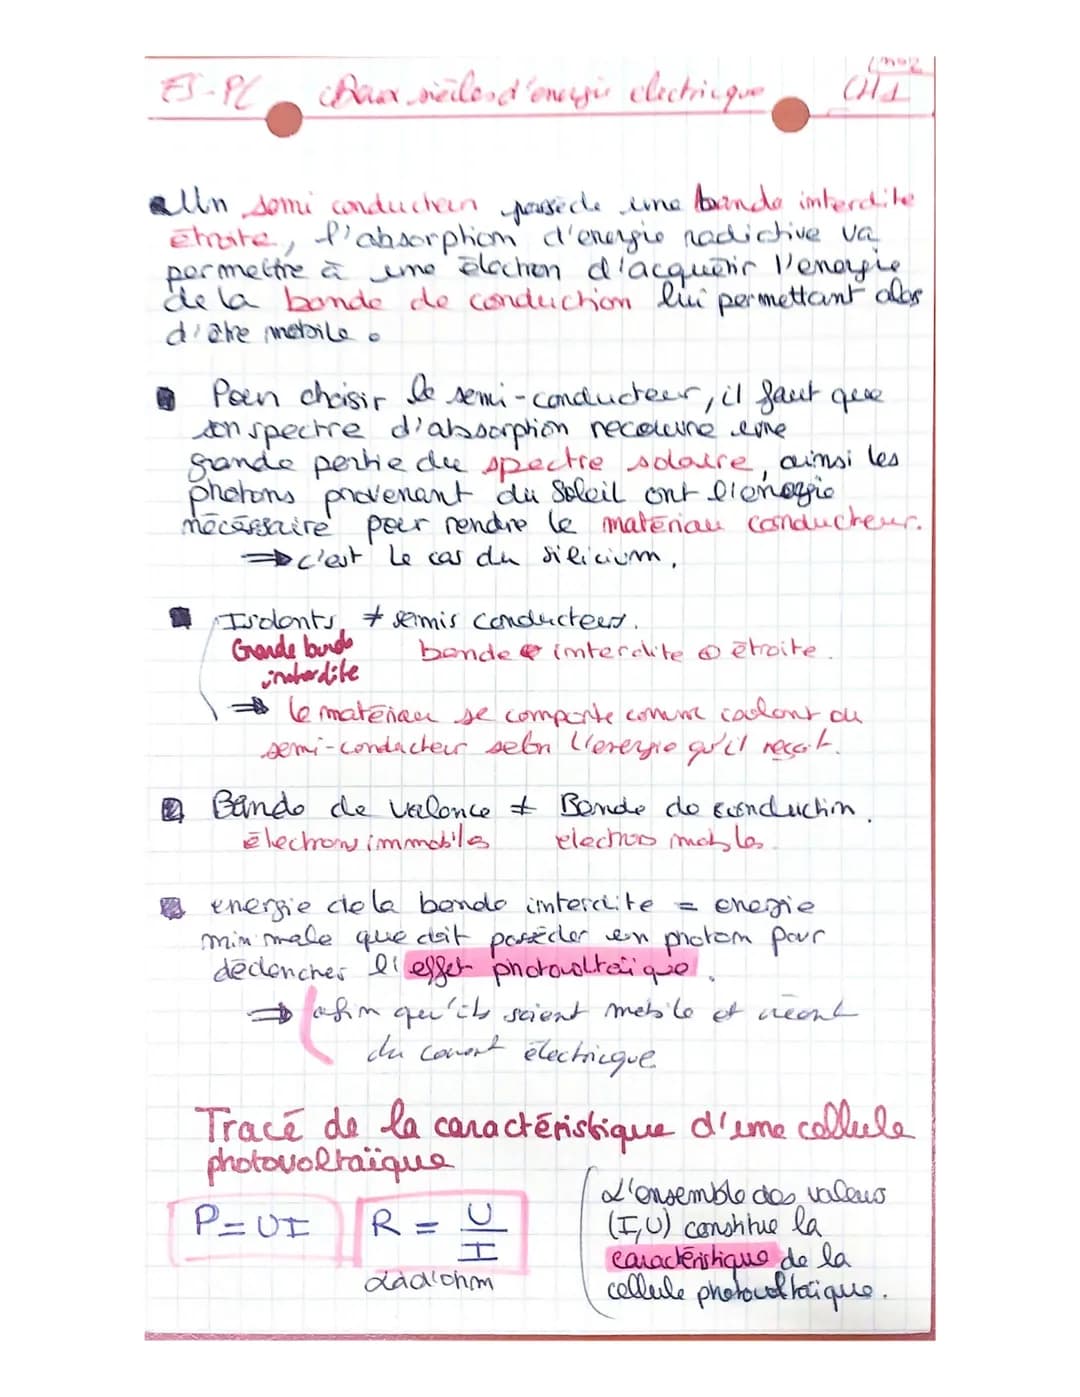 ES-PC Deux siècles d'énergie electrique CH1
Un semi conducteur possède une bande interdite
étroite, l'absorption d'energie radictive va
permettre à une élection d'acquérir l'energie
de la bande de conduction lui permettant alors
d'être mobile.
Pour choisir le semi-conducteur, il faut que
son spectre d'absorption recouvre une
grande partie du spectre solaire, ainsi les
photons provenant du Soleil ont l'énergie
nécéssaire pour rendre le matériau conducteur.
⇒ c'est le cas du silicium.
Isolants ≠ semis conducteurs.
Grande bande bande interdite étroite.
interdite
⇒ le matériau se comporte comme isolant ou
semi-conducteur selon l'energie qu'il reçoit.
Bande de valence ≠ Bande de conduction.
électrons immobiles electrons mobiles.
energie de la bande interdite = energie
minimale que doit posséder un photon pour
déclencher l'effet photovoltaïque.
⇒ afin qu'ils soient mobile et créent
du courant électrique
Tracé de la caractéristique d'une cellule
photovoltaïque
P=UI R = U/I
Loi d'ohm
L'ensemble des valeurs
(I,U) constitue la
caractéristique de la
cellule photovoltaïque.